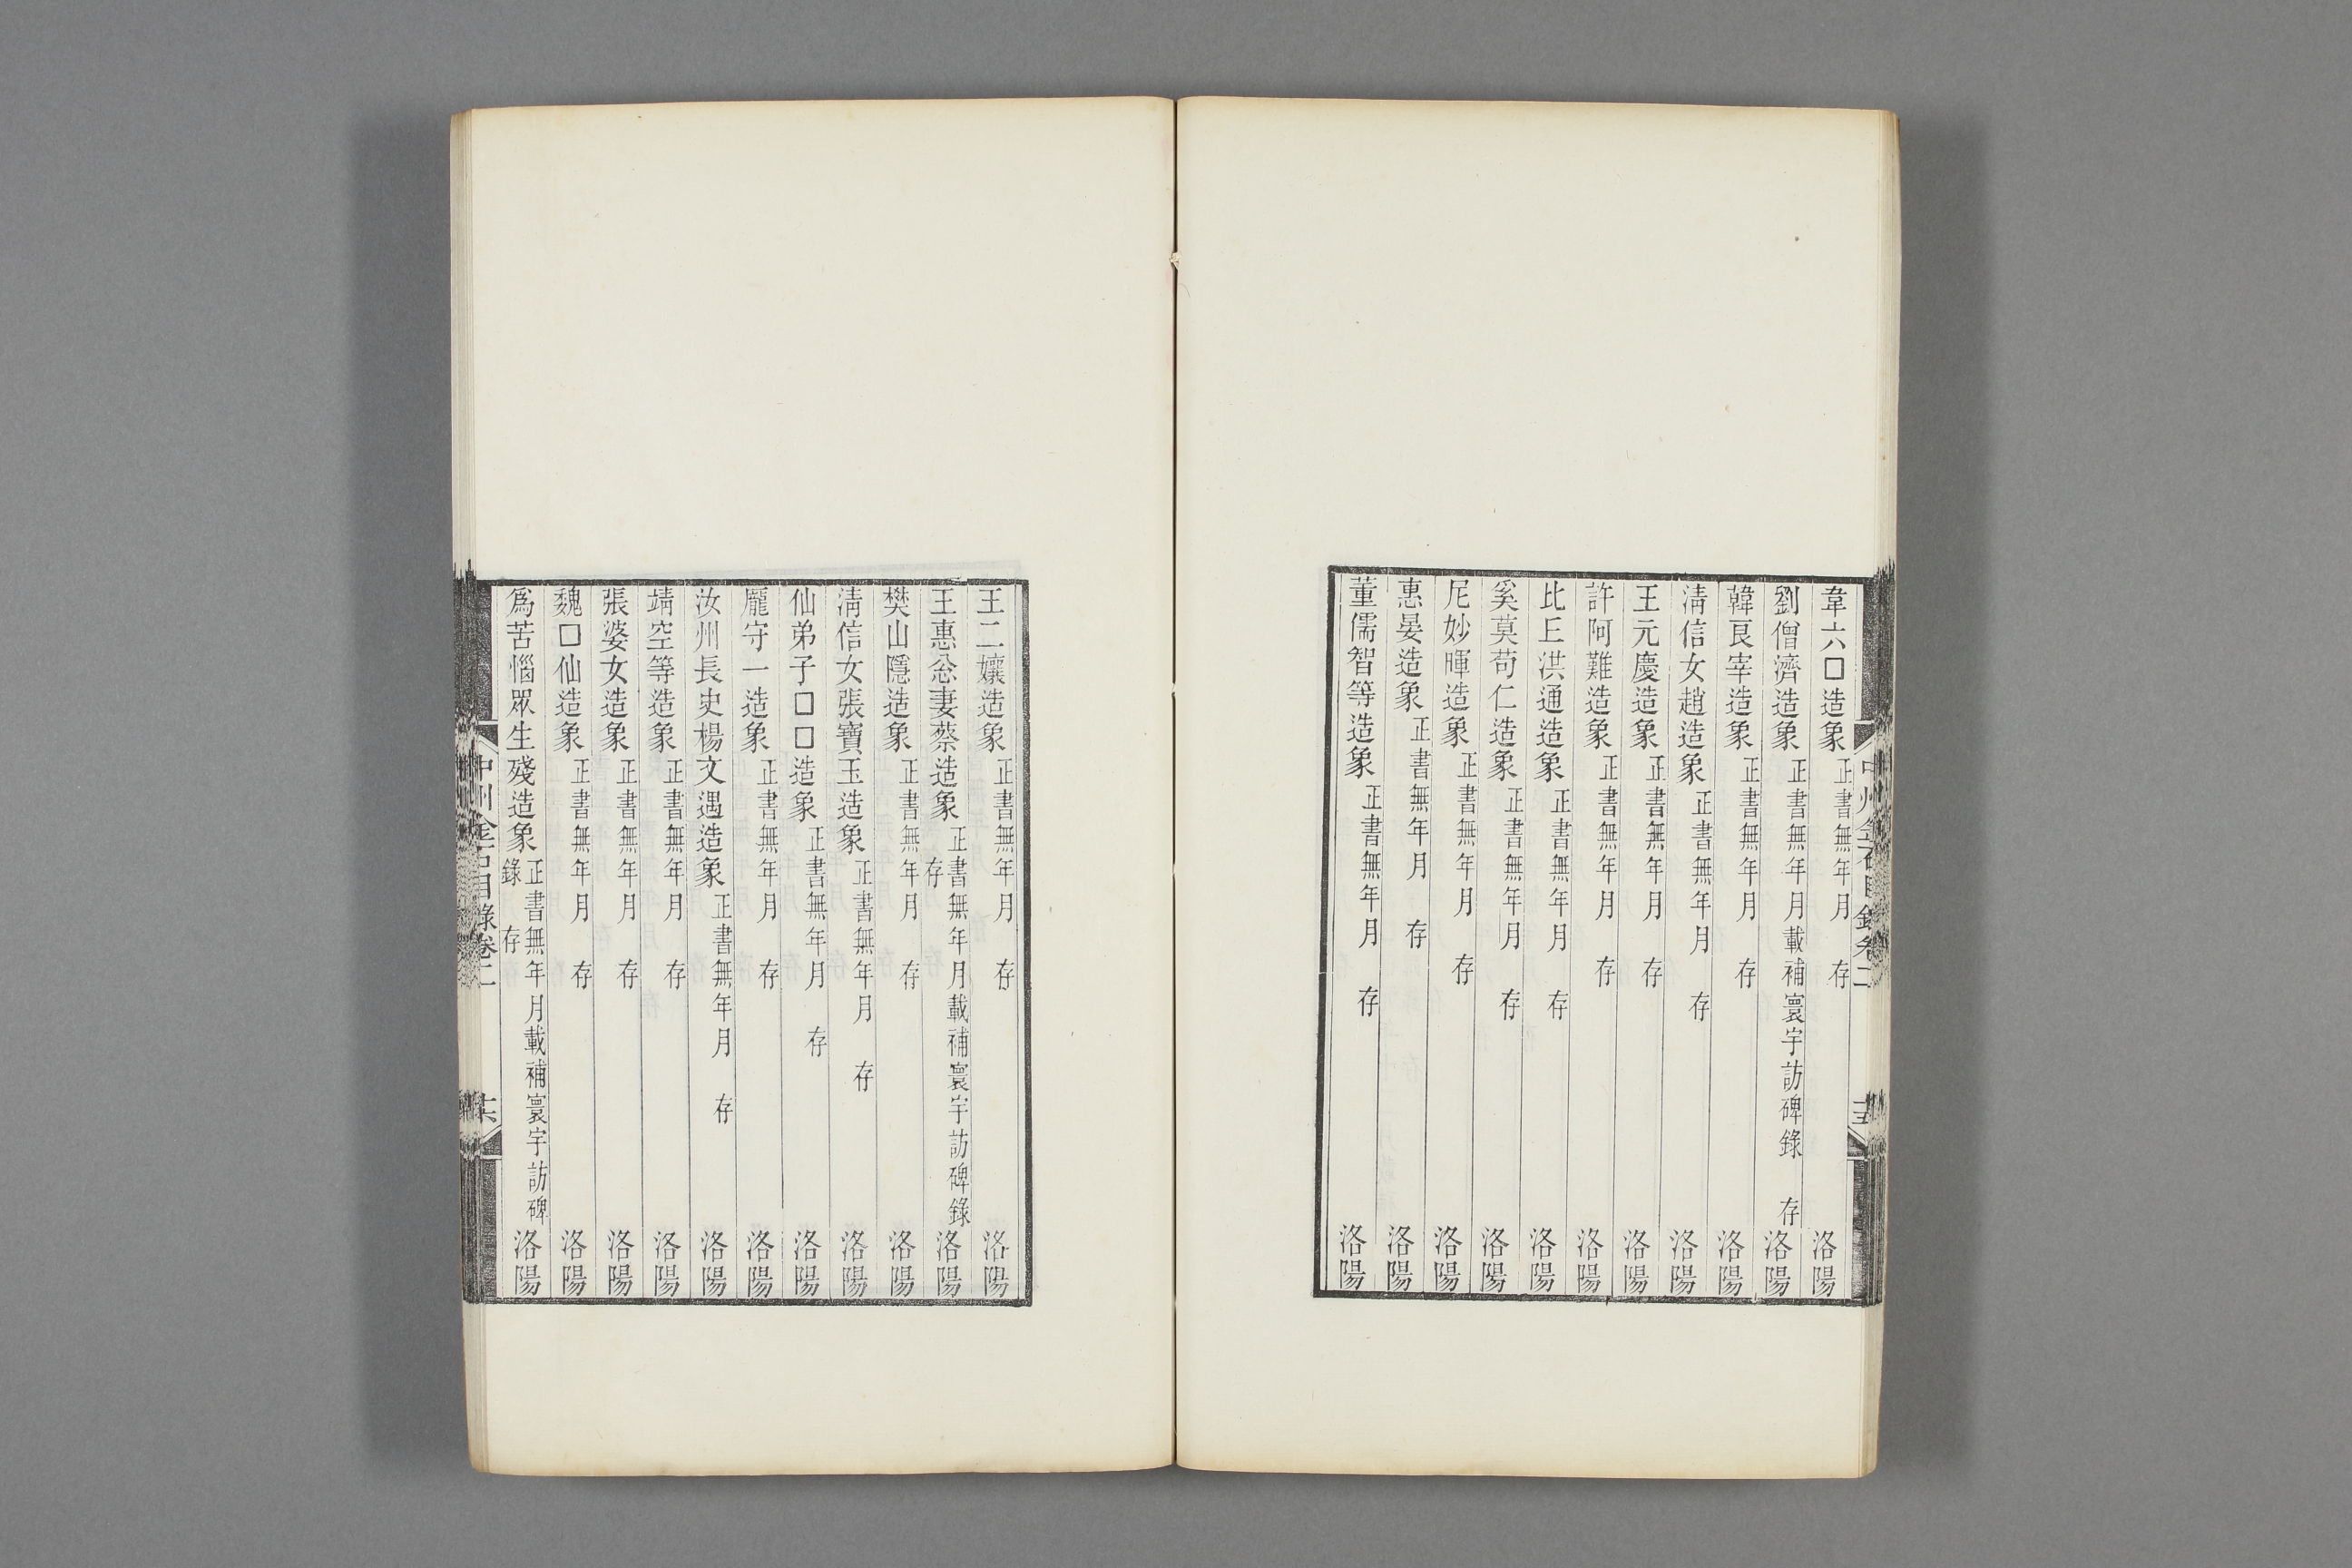 韋六□造象 正書無年月 存 洛陽
劉僧濟造象 正書無年月載補寰宇訪碑錄 存 洛陽
韓㫐宰造象 正書無年月 存 洛陽
淸信女趙造象 正書無年月 存 洛陽
王元慶造象 正書無年月 存 洛陽
許阿難造象 正書無年月 存 洛陽
比丘洪通造象 正書無年月 存 洛陽
奚莫苟仁造象 正書無年月 存 洛陽
尼妙暉造象 正書無年月 存 洛陽
惠晏造象 正書無年月 存 洛陽
董儒智等造象 正書無年月 存 洛陽
中州金石目錄卷二
王二孃造象 正書無年月 存 洛陽
王惠忩妻蔡造象 正書無年月載補寰宇訪碑錄 存 洛陽
樊山隱造象 正書無年月 存 洛陽
淸信女張寶玉造象 正書無年月 存 洛陽
仙弟子□□造象 正書無年月 存 洛陽
龐守一造象 正書無年月 存 洛陽
汝州長史楊文遇造象 正書無年月 存 洛陽
靖空等造象 正書無年月 存 洛陽
張婆女造象 正書無年月 存 洛陽
魏□仙造象 正書無年月 存 洛陽
爲苦惱眾生殘造象 正書無年月載補寰宇訪碑錄 存 洛陽
中州金石目錄卷二